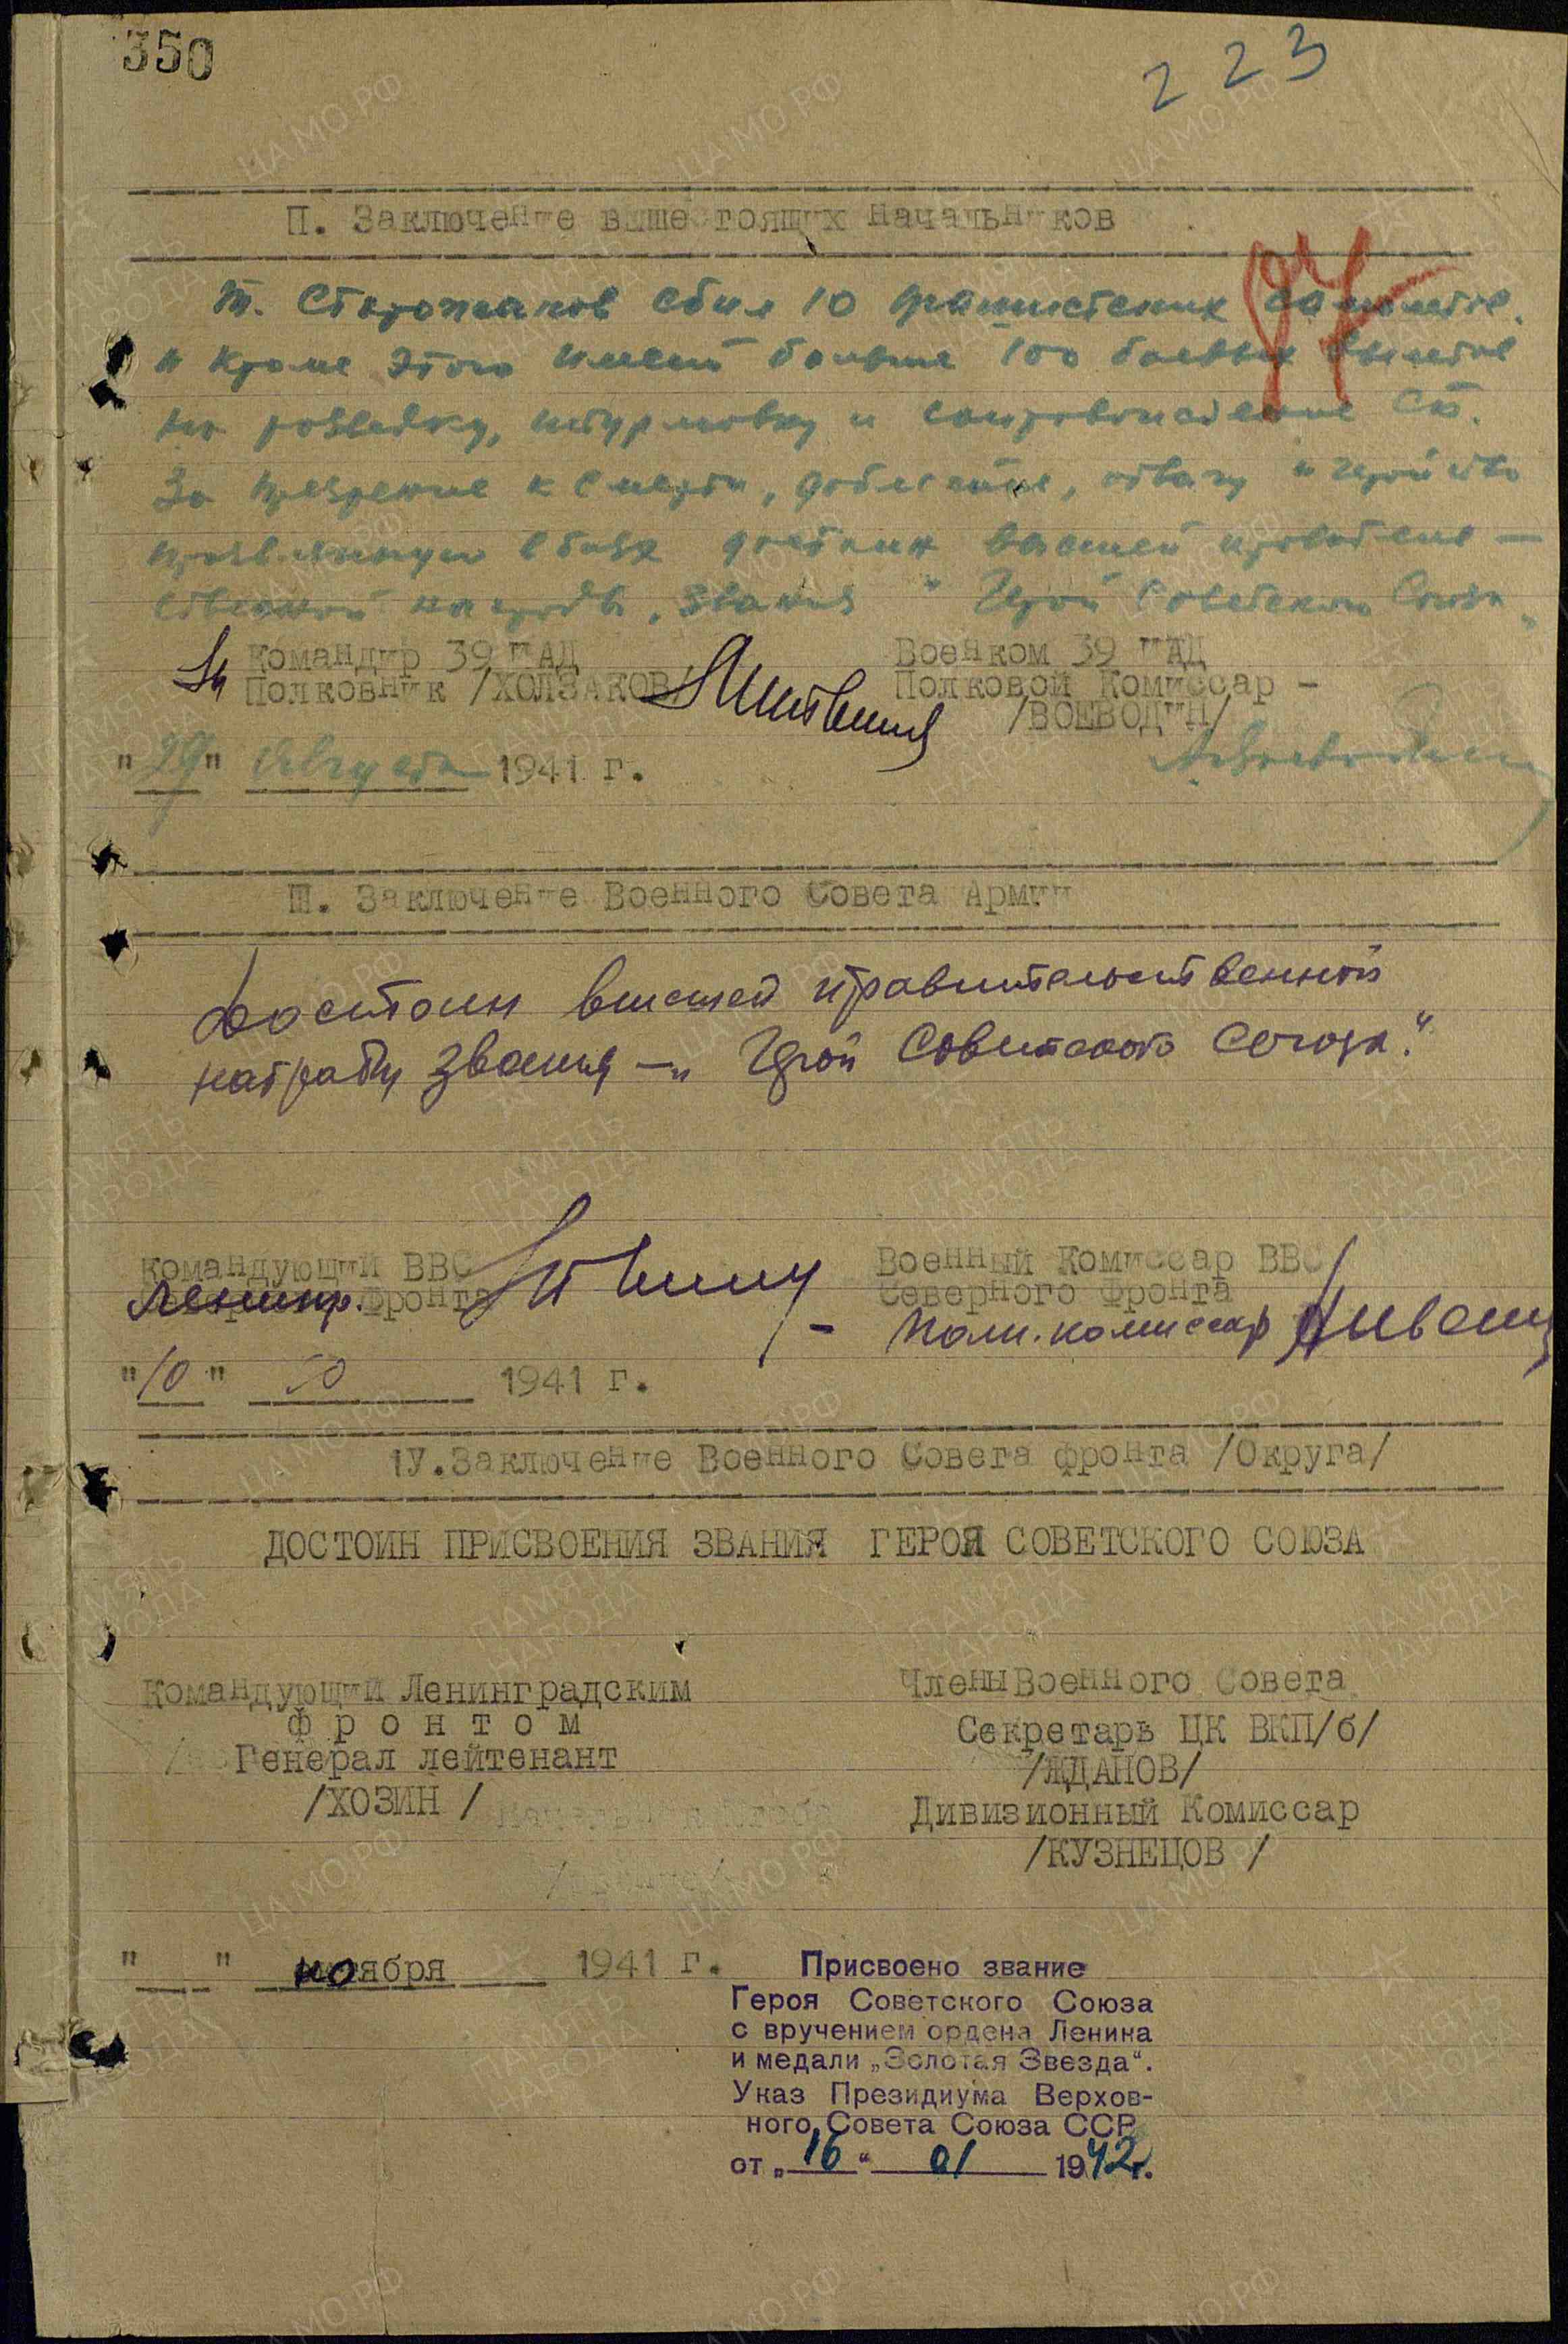 350
223
П. Заключение вышестоящих начальников
97
т. Сторожаков сбил 10 фашистских самолетов.
и кроме этого имеет больше 100 боевых вылетов
на разведку, штурмовку и сопровождение СБ.
За презрение к смерти, доблесть, отвагу и геройство
в боях достоин высшей правительс—
твенной награды, звания "Герой Советского Союза"
Командир 39 ИАД
Полковник /ХОЛЗАКОВ/
Военком 39 ИАД
Полковой Комиссар -
/ВОЕВОДИН/
"29" августа 1941 г.
Ш. Заключение Военного Совета Армии
Достоин высшей правительственной
награды звания — "Герой Советского Союза."
Командующий ВВС
Ленингр. Фронта
Военный Комиссар ВВС
Северного Фронта
полк. комиссар
"10" 10 1941 г.
1У. Заключение Военного Совета фронта /Округа/
ДОСТОИН ПРИСВОЕНИЯ ЗВАНИЯ ГЕРОЯ СОВЕТСКОГО СОЮЗА
Командующий Ленинградским
фронтом
Генерал лейтенант
/ХОЗИН /
Члены Военного Совета
Секретарь ЦК ВКП/б/
/ЖДАНОВ/
Дивизионный Комиссар
/КУЗНЕЦОВ /
" " ноября 1941 г.
Присвоено звание
Героя Советского Союза
с вручением ордена Ленина
и медали „Золотая Звезда“.
Указ Президиума Верхов-
ного Совета Союза ССР
от „16“ 01 1942г.